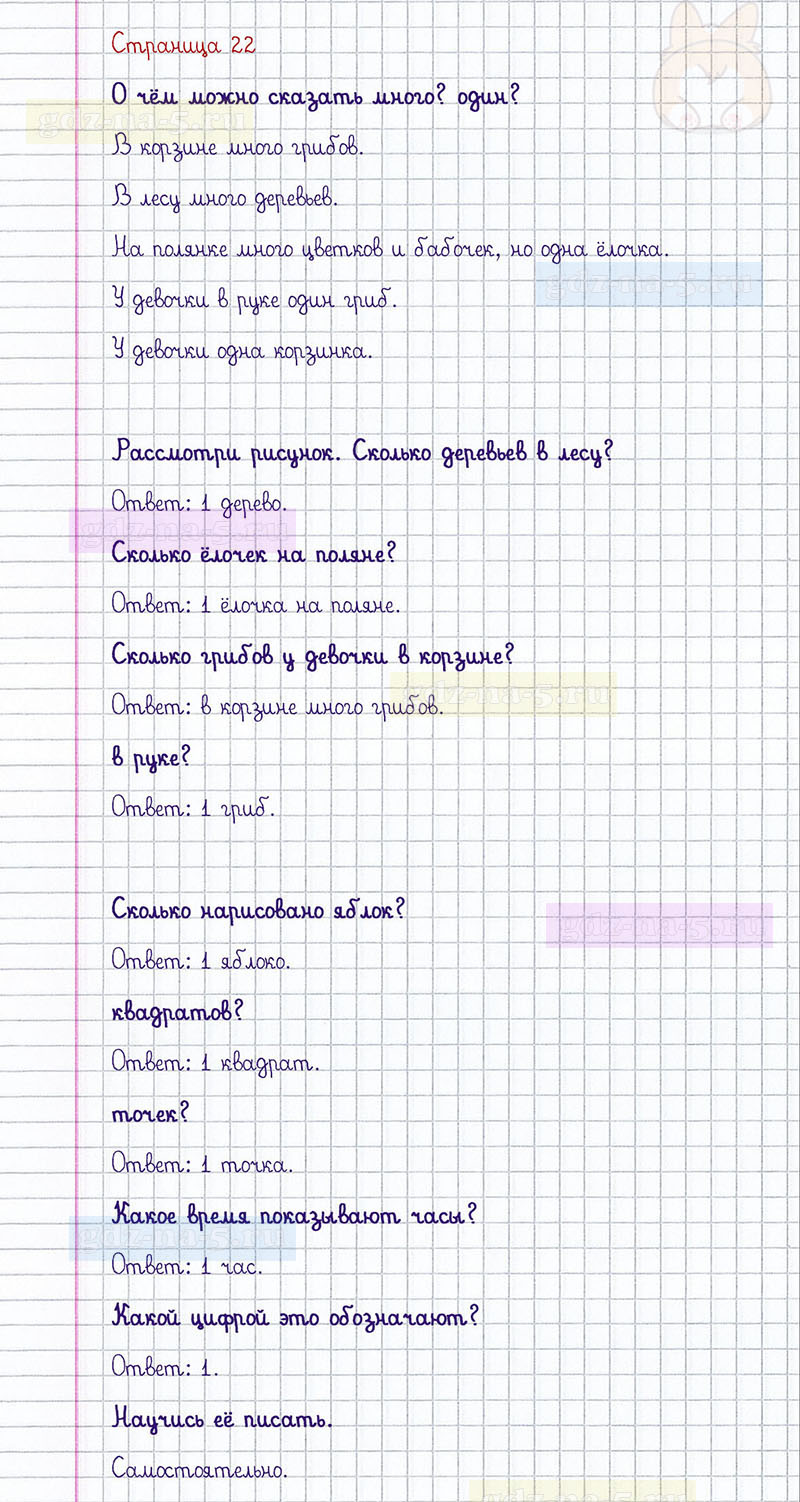 Страница 22
О чём можно сказать много? один?
gdz-na-5.ru
В корзине много грибов.
В лесу много деревьев.
На полянке много цветков и бабочек, но одна ёлочка.
gdz-na-5.ru
У девочки в руке один гриб.
У девочки одна корзинка.
Рассмотри рисунок. Сколько деревьев в лесу?
Ответ: 1 дерево.
gdz-na-5.ru
Сколько ёлочек на поляне?
Ответ: 1 ёлочка на поляне.
Сколько грибов у девочки в корзине?
gdz-na-5.ru
Ответ: в корзине много грибов.
в руке?
Ответ: 1 гриб.
Сколько нарисовано яблок?
gdz-na-5.ru
Ответ: 1 яблоко.
квадратов?
Ответ: 1 квадрат.
точек?
Ответ: 1 точка.
Какое время показывают часы?
gdz-na-5.ru
Ответ: 1 час.
Какой цифрой это обозначают?
Ответ: 1.
Научись её писать.
Самостоятельно.
gdz-na-5.ru